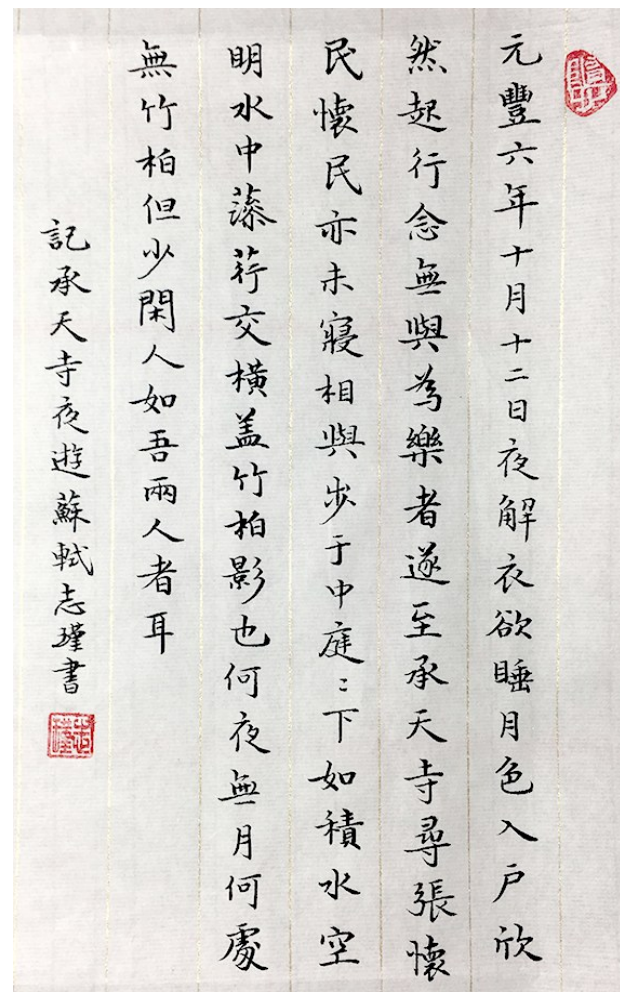 元豐六年十月十二日夜解衣欲睡月色入户欣
然起行念無與為樂者遂至承天寺尋張懷
民懷民亦未寢相與步于中庭〻下如積水空
明水中藻荇交橫盖竹柏影也何夜無月何處
無竹柏但少閑人如吾兩人者耳
記承天寺夜遊蘇軾志瑾書
志瑾